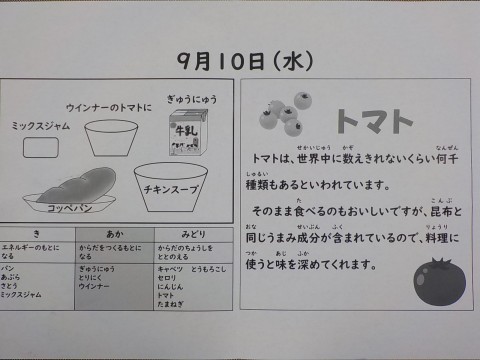 9月10日(水)
ぎゅうにゅう
ウインナーのトマトに
牛乳
ミックスジャム
チキンスープ
コッペパン
き
あか
みどり
エネルギーのもとに
なる
からだをつくるもとに
なる
からだのちょうしを
ととのえる
パン
あぶら
さとう
ミックスジャム
ぎゅうにゅう
とりにく
ウインナー
キャベツ とうもろこし
セロリ
にんじん
トマト
たまねぎ
トマト
せかいじゅう かぞ なんぜん
トマトは、世界中に数えきれないくらい何千
しゅるい
種類もあるといわれています。
た こんぶ
そのまま食べるのもおいしいですが、昆布と
おな せいぶん ふく りょうり
同じうまみ成分が含まれているので、料理に
つか あじ ふか
使うと味を深めてくれます。